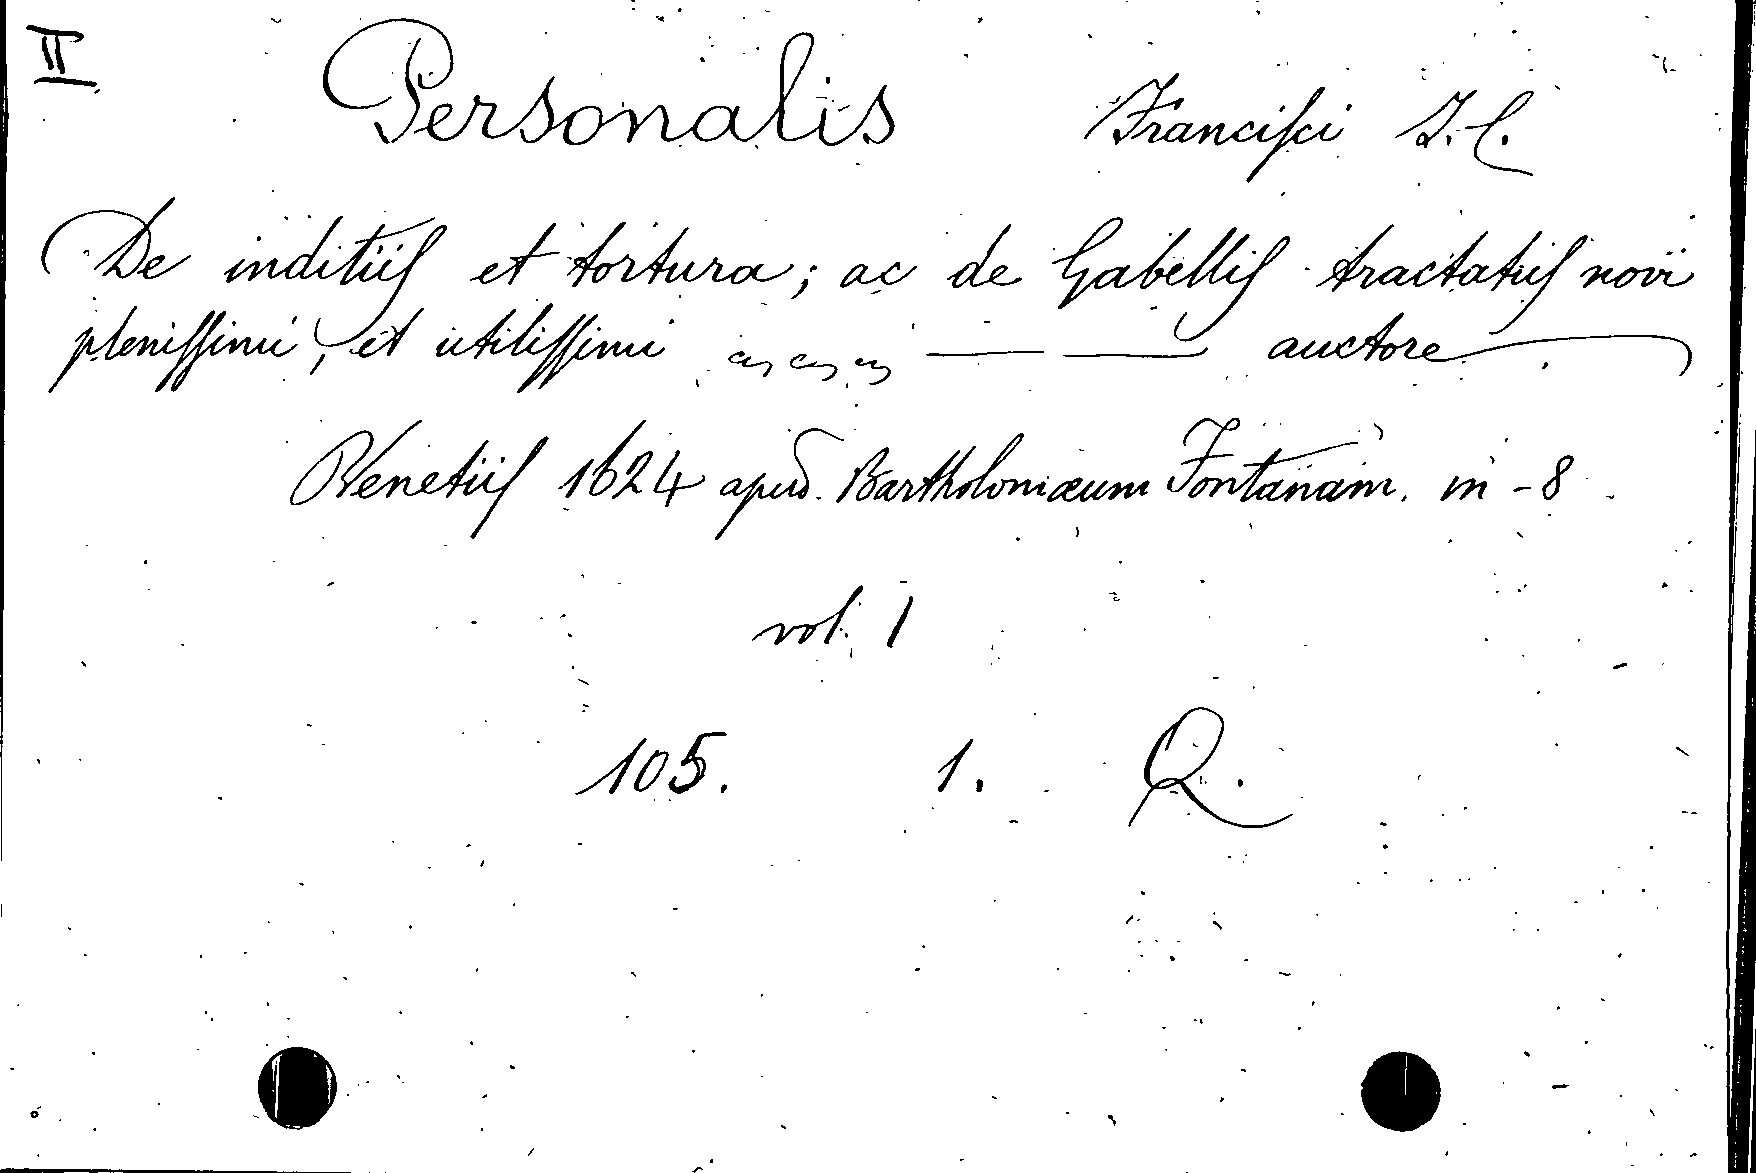 II
Personalis Franciſci J. C.
De inditiis et tortura; ac de Gabellis tractatus novi
pleniſſimi, et utiliſſimi — — auctore —
Venetiis 1624 apud. Bartholomæum Fontanam. in - 8
vol. 1
105. 1. Q.